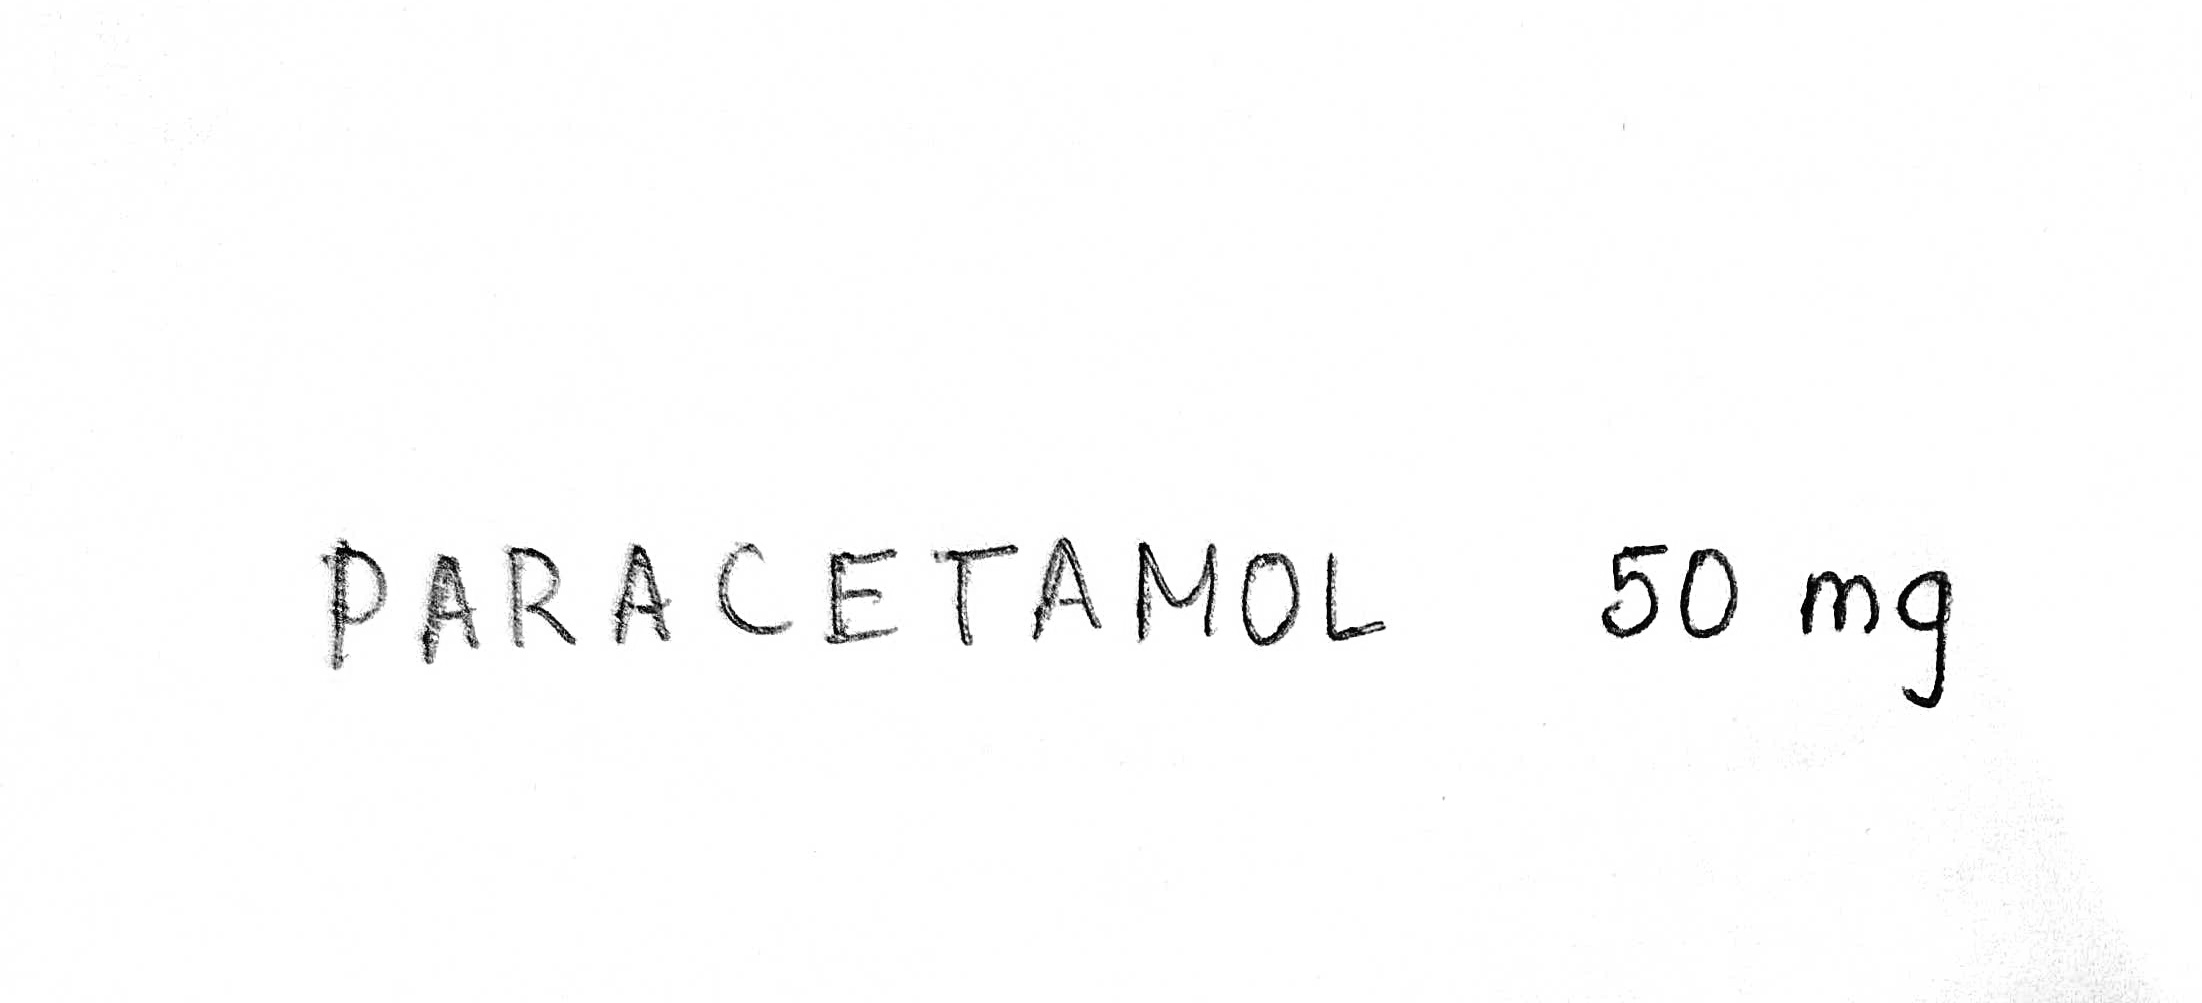 PARACETAMOL 50 mg